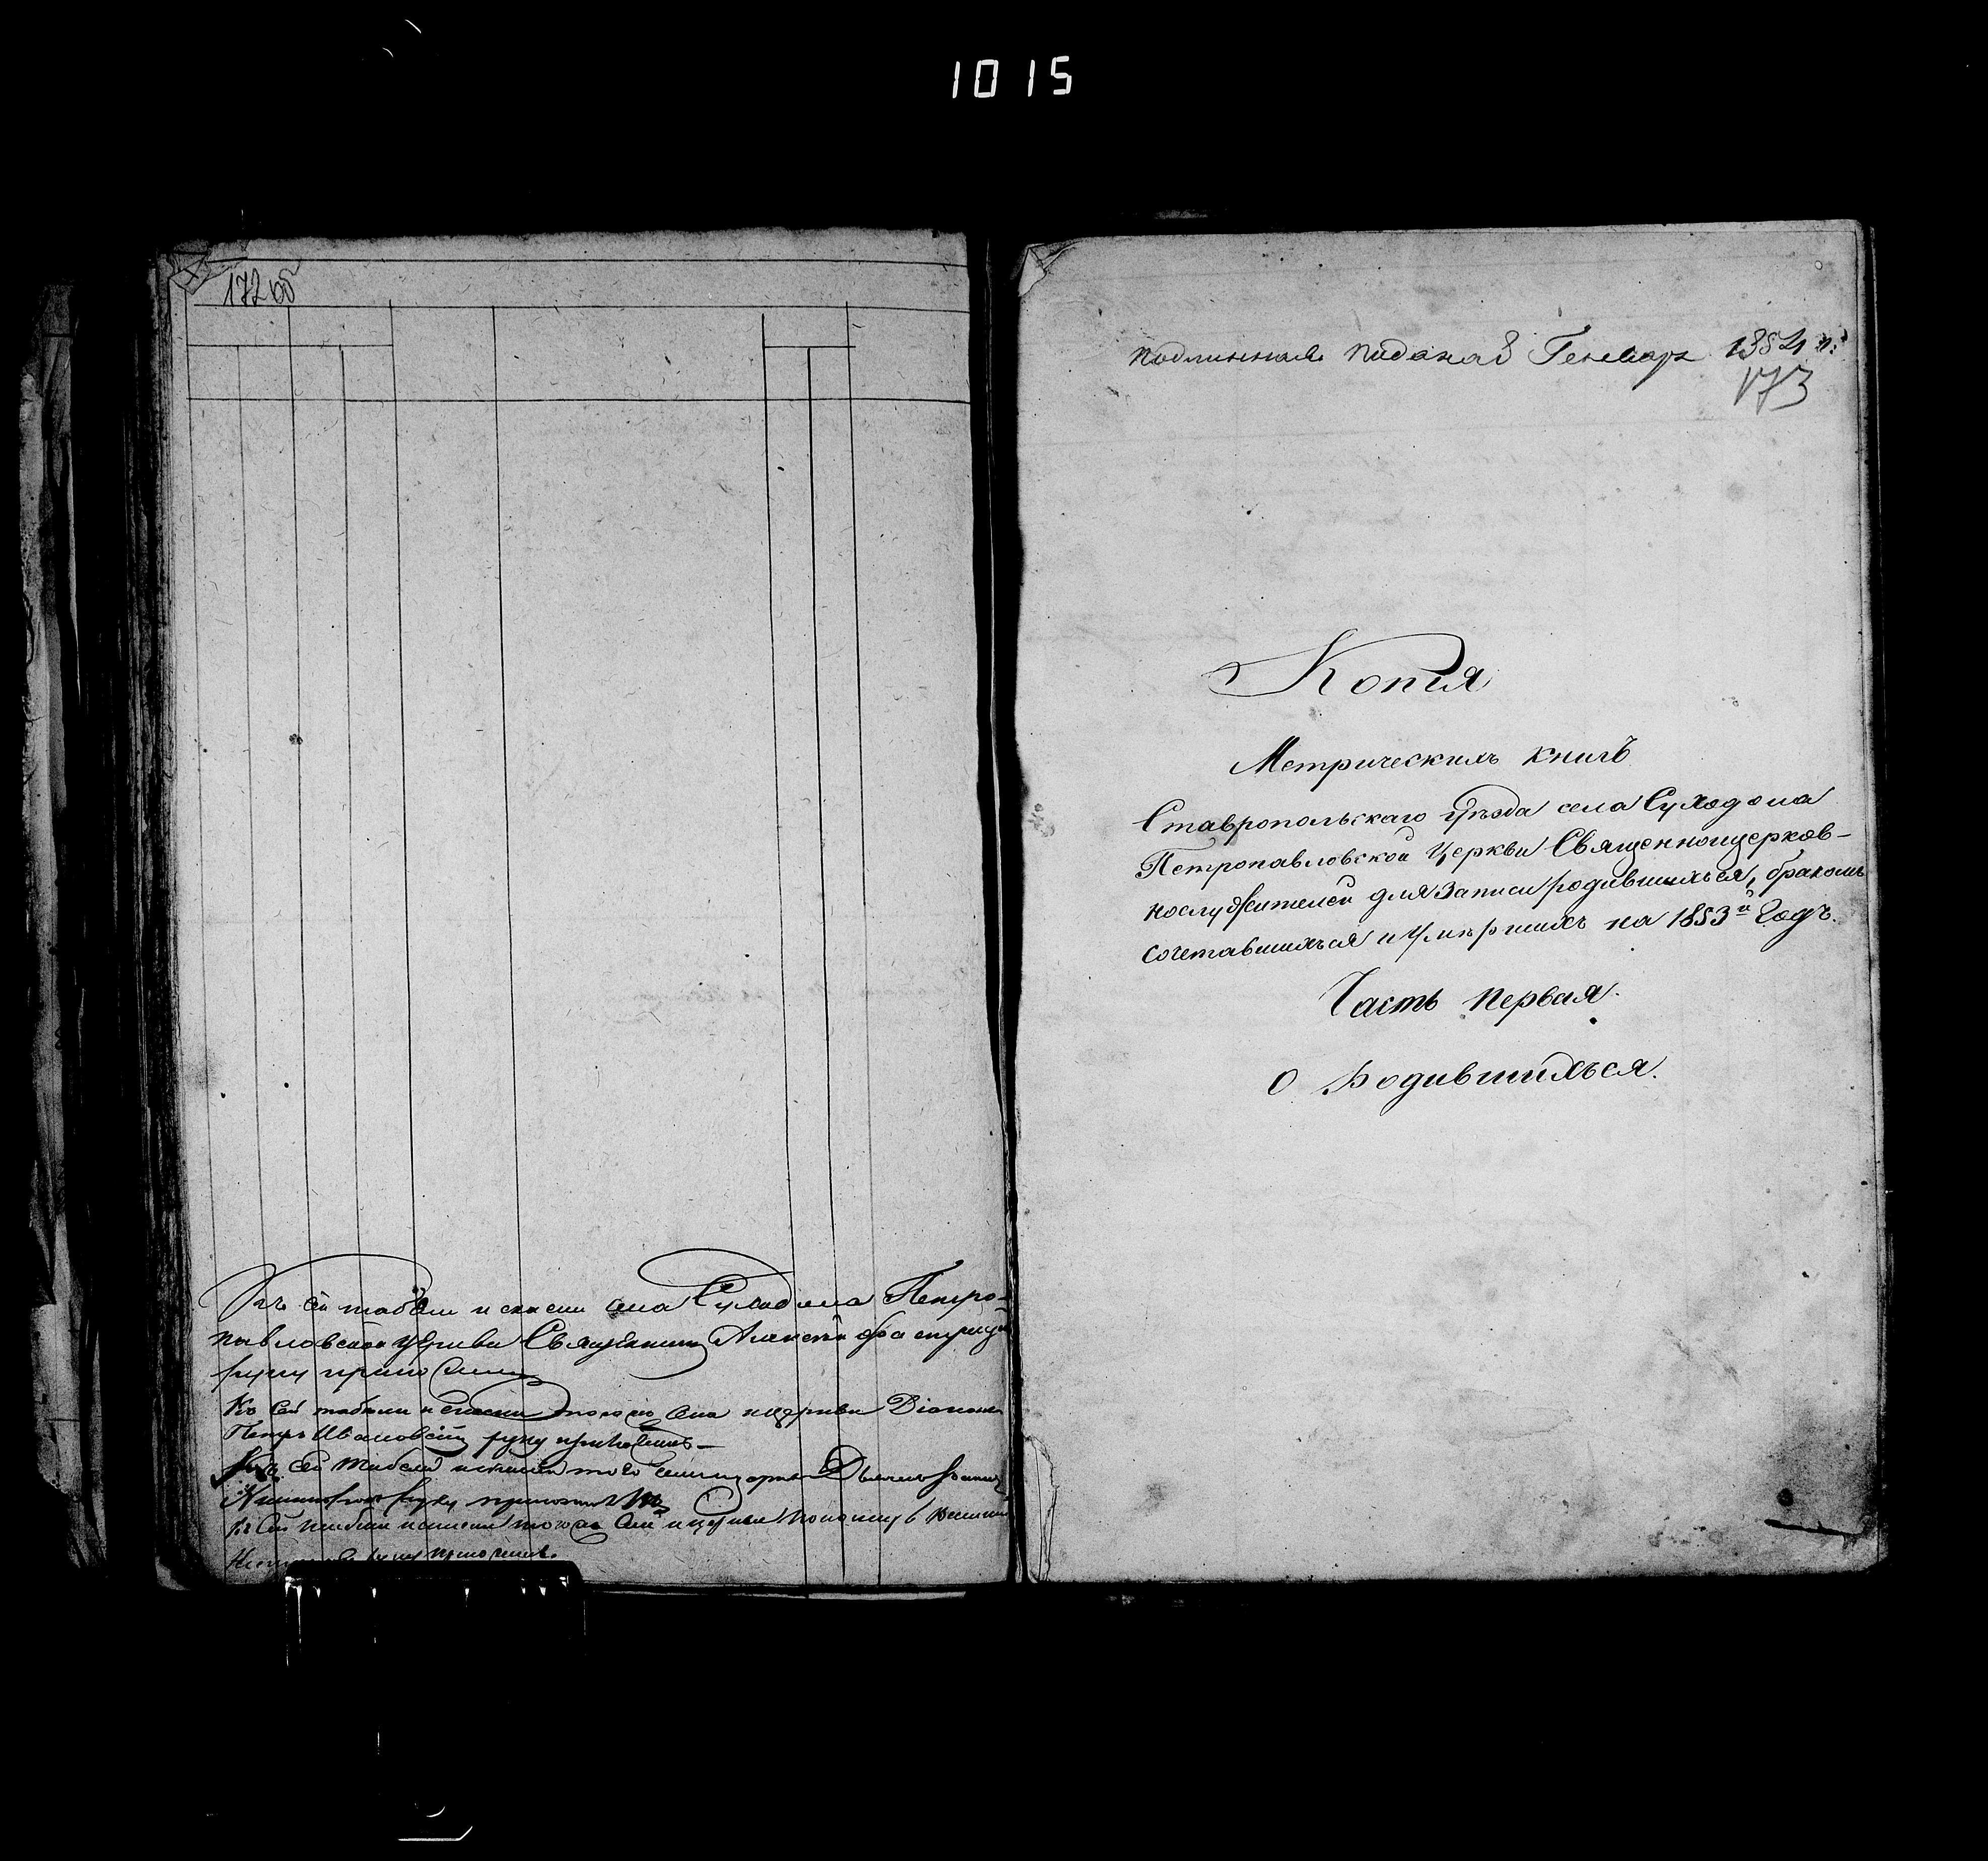 1015
172 об
Къ сей табели и списки села Суходола Петро-
павловской церкви Священникъ Алексѣй
руку приложилъ
Къ сей табели и списки тогожъ села и церкви Діаконъ
Петръ Ивановскій руку приложилъ
Къ сей табели и списки того села и церкви Дьячекъ
руку приложилъ
Къ сей табели и списки тогожъ села и церкви Пономарь
руку приложилъ.
подлинная подана 8 Генваря 1854 г.
173
Копія
Метрическихъ книгъ
Ставропольскаго уѣзда села Суходола
Петропавловской Церкви Священноцерков-
нослужителей для записи родившихъся, бракомъ
сочетавшихъся и умѣршихъ на 1853й Годъ.
Часть первая.
О Родившихъся.